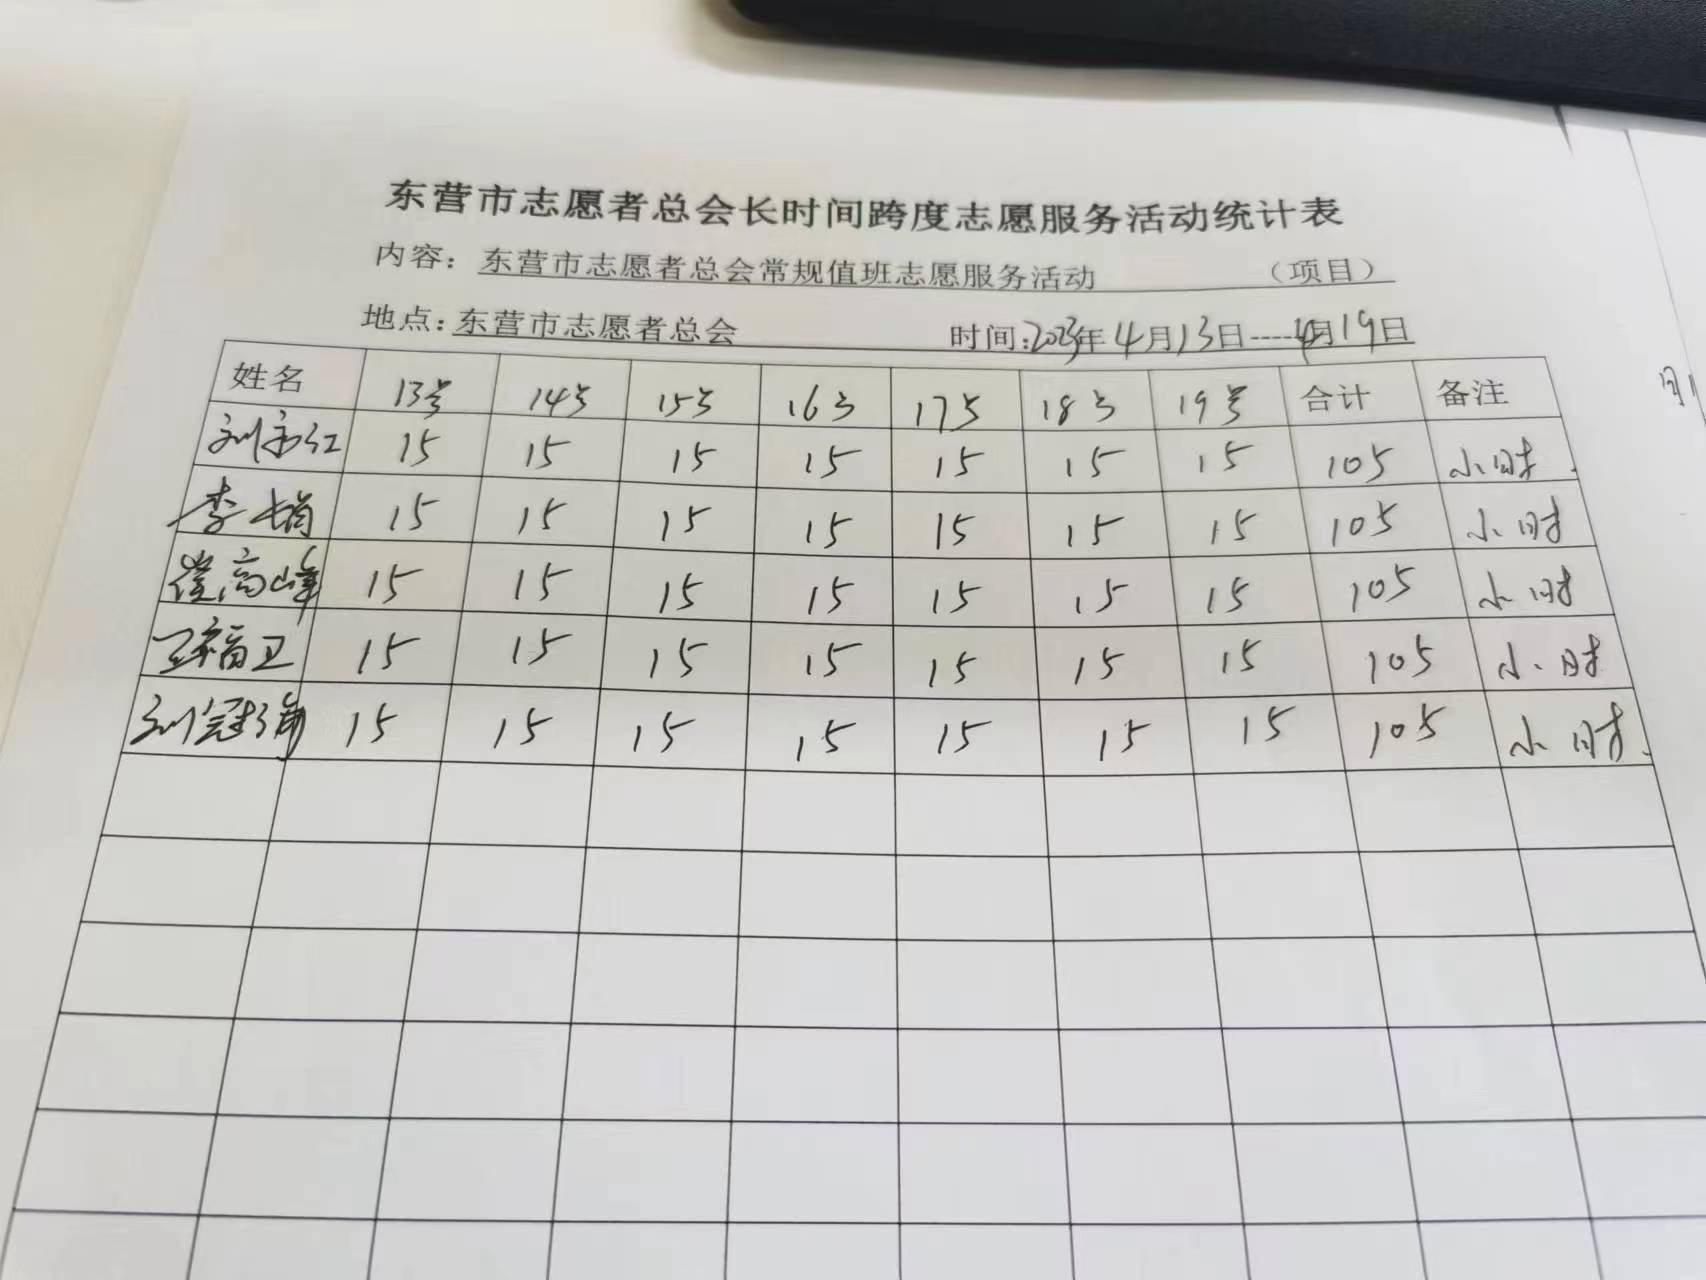 东营市志愿者总会长时间跨度志愿服务活动统计表
内容：东营市志愿者总会常规值班志愿服务活动 （项目）
地点：东营市志愿者总会 时间：2023年4月13日----4月19日
姓名 13号 14号 15号 16号 17号 18号 19号 合计 备注
刘永红 15 15 15 15 15 15 15 105 小时
李娟 15 15 15 15 15 15 15 105 小时
高峰 15 15 15 15 15 15 15 105 小时
王福卫 15 15 15 15 15 15 15 105 小时
刘冠 15 15 15 15 15 15 15 105 小时